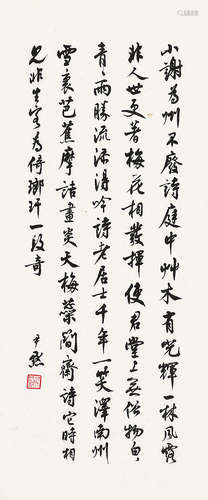 小謝為州不廢詩庭中艸木有光輝一林風露
非人世更著梅花相發揮使君堂上無俗物白々
青々兩勝流添得吟詩老居士千年一笑澤南州
雪裏芭蕉摩詰畫炎天梅蘂簡齋詩它時相
見非生客看倚琅玕一段奇
尹默